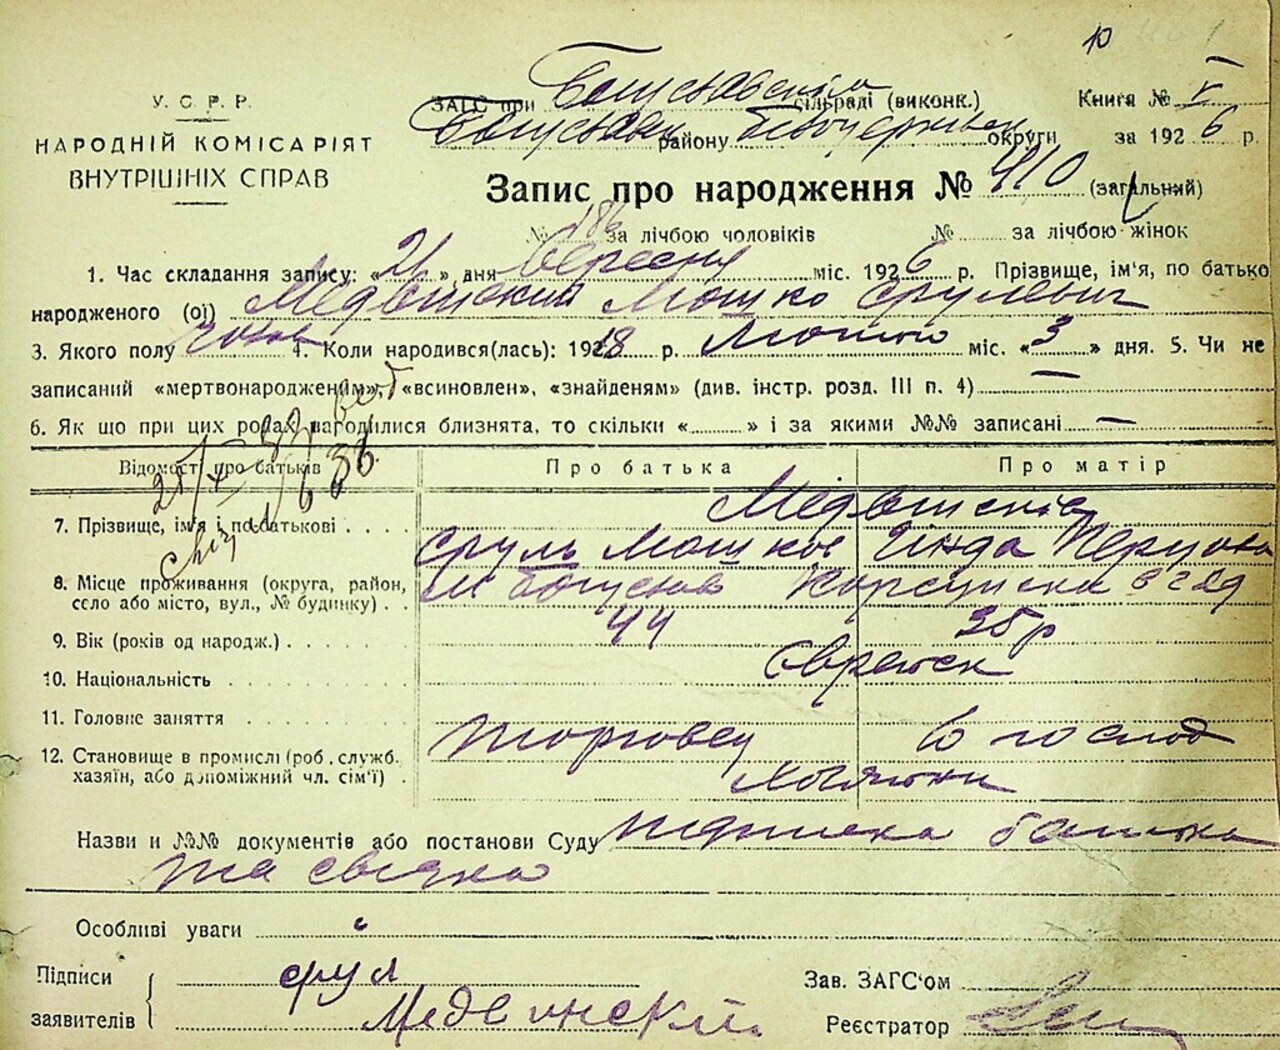 У.С.Р.Р.
НАРОДНІЙ КОМІСАРІЯТ
ВНУТРІШНІХ СПРАВ
ЗАГС при Богуславскім сільраді (виконк.) Книга № V
Богуславськ району Білоцерківськ округи за 1926 р.
Запис про народження № 410 (загальний)
№ 186 за лічбою чоловіків № за лічбою жінок
1. Час складання запису: «21» дня вересня міс. 1926 р. Прізвище, ім'я, по батько
народженого (ої) Медвинский Мошко Срулевич
3. Якого полу чолов 4. Коли народився(лась): 1918 р. Лютого міс. «3» дня. 5. Чи не
записаний «мертвонародженим», «всиновлен», «знайденям» (див. інстр. розд. III п. 4) —
6. Як що при цих родах нагодилися близнята, то скільки «» і за якими №№ записані —
Відомості про батьків Про батька Про матір
7. Прізвище, ім'я і по батькові Медвинскіе
Сруль Мошков Гінда Перцова
8. Місце проживання (округа, район, м Богуслав Корсунска
село або місто, вул., № будинку)
9. Вік (років од народж.) 44 35р
10. Національність Єврейск
11. Головне заняття Торговец
12. Становище в промислі (роб., служб.
хазяїн, або допоміжний чл. сім'ї)
Назви и №№ документів або постанови Суду підписка батька
та свідка
Особливі уваги
Підписи срул Зав. ЗАГС'ом
заявителів Медвинский. Реєстратор